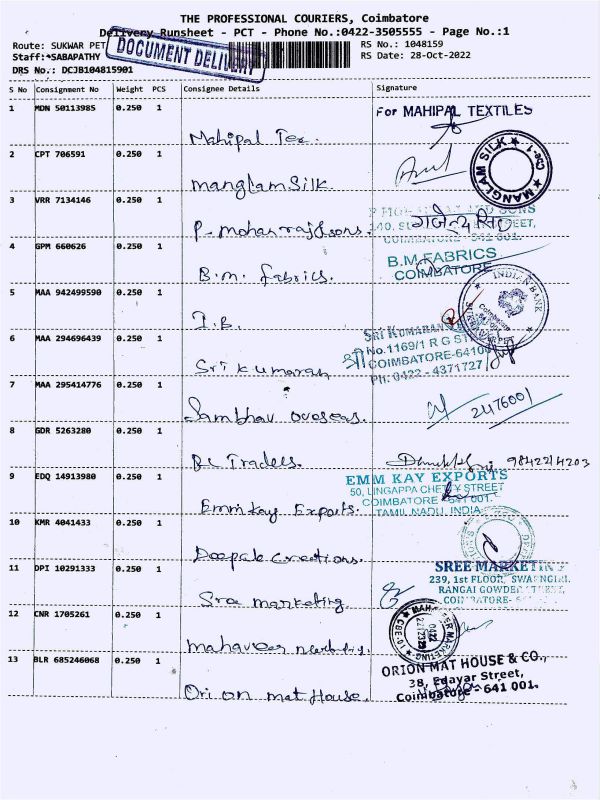 THE PROFESSIONAL COURIERS, Coimbatore
Delivery Runsheet - PCT - Phone No.:0422-3505555 - Page No.:1
Route: SUKWAR PET
RS No.: 1048159
Staff:*SABAPATHY
RS Date: 28-Oct-2022
DRS No.: DCJB104815901
DOCUMENT DELIVERY
S No Consignment No Weight PCS Consignee Details Signature
1 MDN 50113985 0.250 1
For MAHIPAL TEXTILES
Mahipal Tex.
2 CPT 706591 0.250 1
MANGLAM SILK CBE-1
manglam Silk.
3 VRR 7134146 0.250 1
AND SONS
COIMBATORE - 641 001.
P. mohanraj & sons.
4 GPM 660626 0.250 1
B.M.FABRICS
COIMBATORE
B.m. fabrics.
5 MAA 942499590 0.250 1
INDIAN BANK
Coimbatore
I.B.
6 MAA 294696439 0.250 1
SRI KUMARAN
No.1169/1 R G ST
COIMBATORE-64100
Ph: 0422 - 4371727
Sri Kumaran
7 MAA 295414776 0.250 1
2476001
Sambhav overseas.
8 GDR 5263280 0.250 1
9842214203
BL Traders.
9 EDQ 14913980 0.250 1
EMM KAY EXPORTS
50, LINGAPPA CHETTY STREET
COIMBATORE - 641 001.
TAMIL NADU, INDIA
Emm kay Exports.
10 KMR 4041433 0.250 1
Deepak creations.
11 DPI 10291333 0.250 1
SREE MARKETING
239, 1st FLOOR,
RANGAI GOWDER STREET,
Sree marketing
12 CNR 1705261 0.250 1
MARKETING CBE-01
mahaveer
13 BLR 685246068 0.250 1
ORION MAT HOUSE & CO.,
38, Edayar Street,
Coimbatore - 641 001.
Orion mat House.